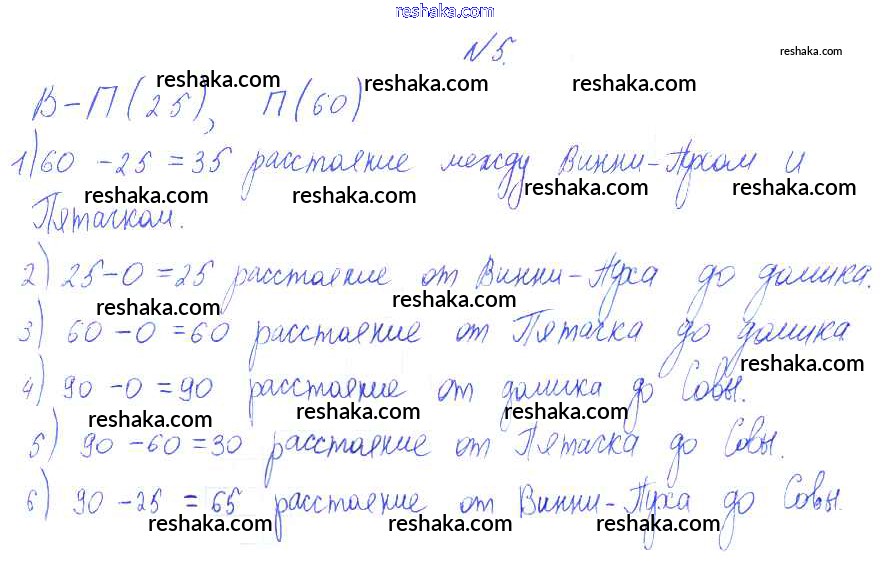 reshaka.com
N 5.
reshaka.com
reshaka.com reshaka.com reshaka.com
В-П(25), П(60)
1) 60 - 25 = 35 расстояние между Винни-Пухом и
reshaka.com reshaka.com reshaka.com reshaka.com
Пятачком.
2) 25-0=25 расстояние от Винни-Пуха до домика.
reshaka.com reshaka.com
3) 60-0=60 расстояние от Пятачка до домика
reshaka.com
4) 90-0=90 расстояние от домика до Совы.
reshaka.com reshaka.com reshaka.com
5) 90-60=30 расстояние от Пятачка до Совы.
6) 90-25 = 65 расстояние от Винни-Пуха до Совы.
reshaka.com reshaka.com reshaka.com